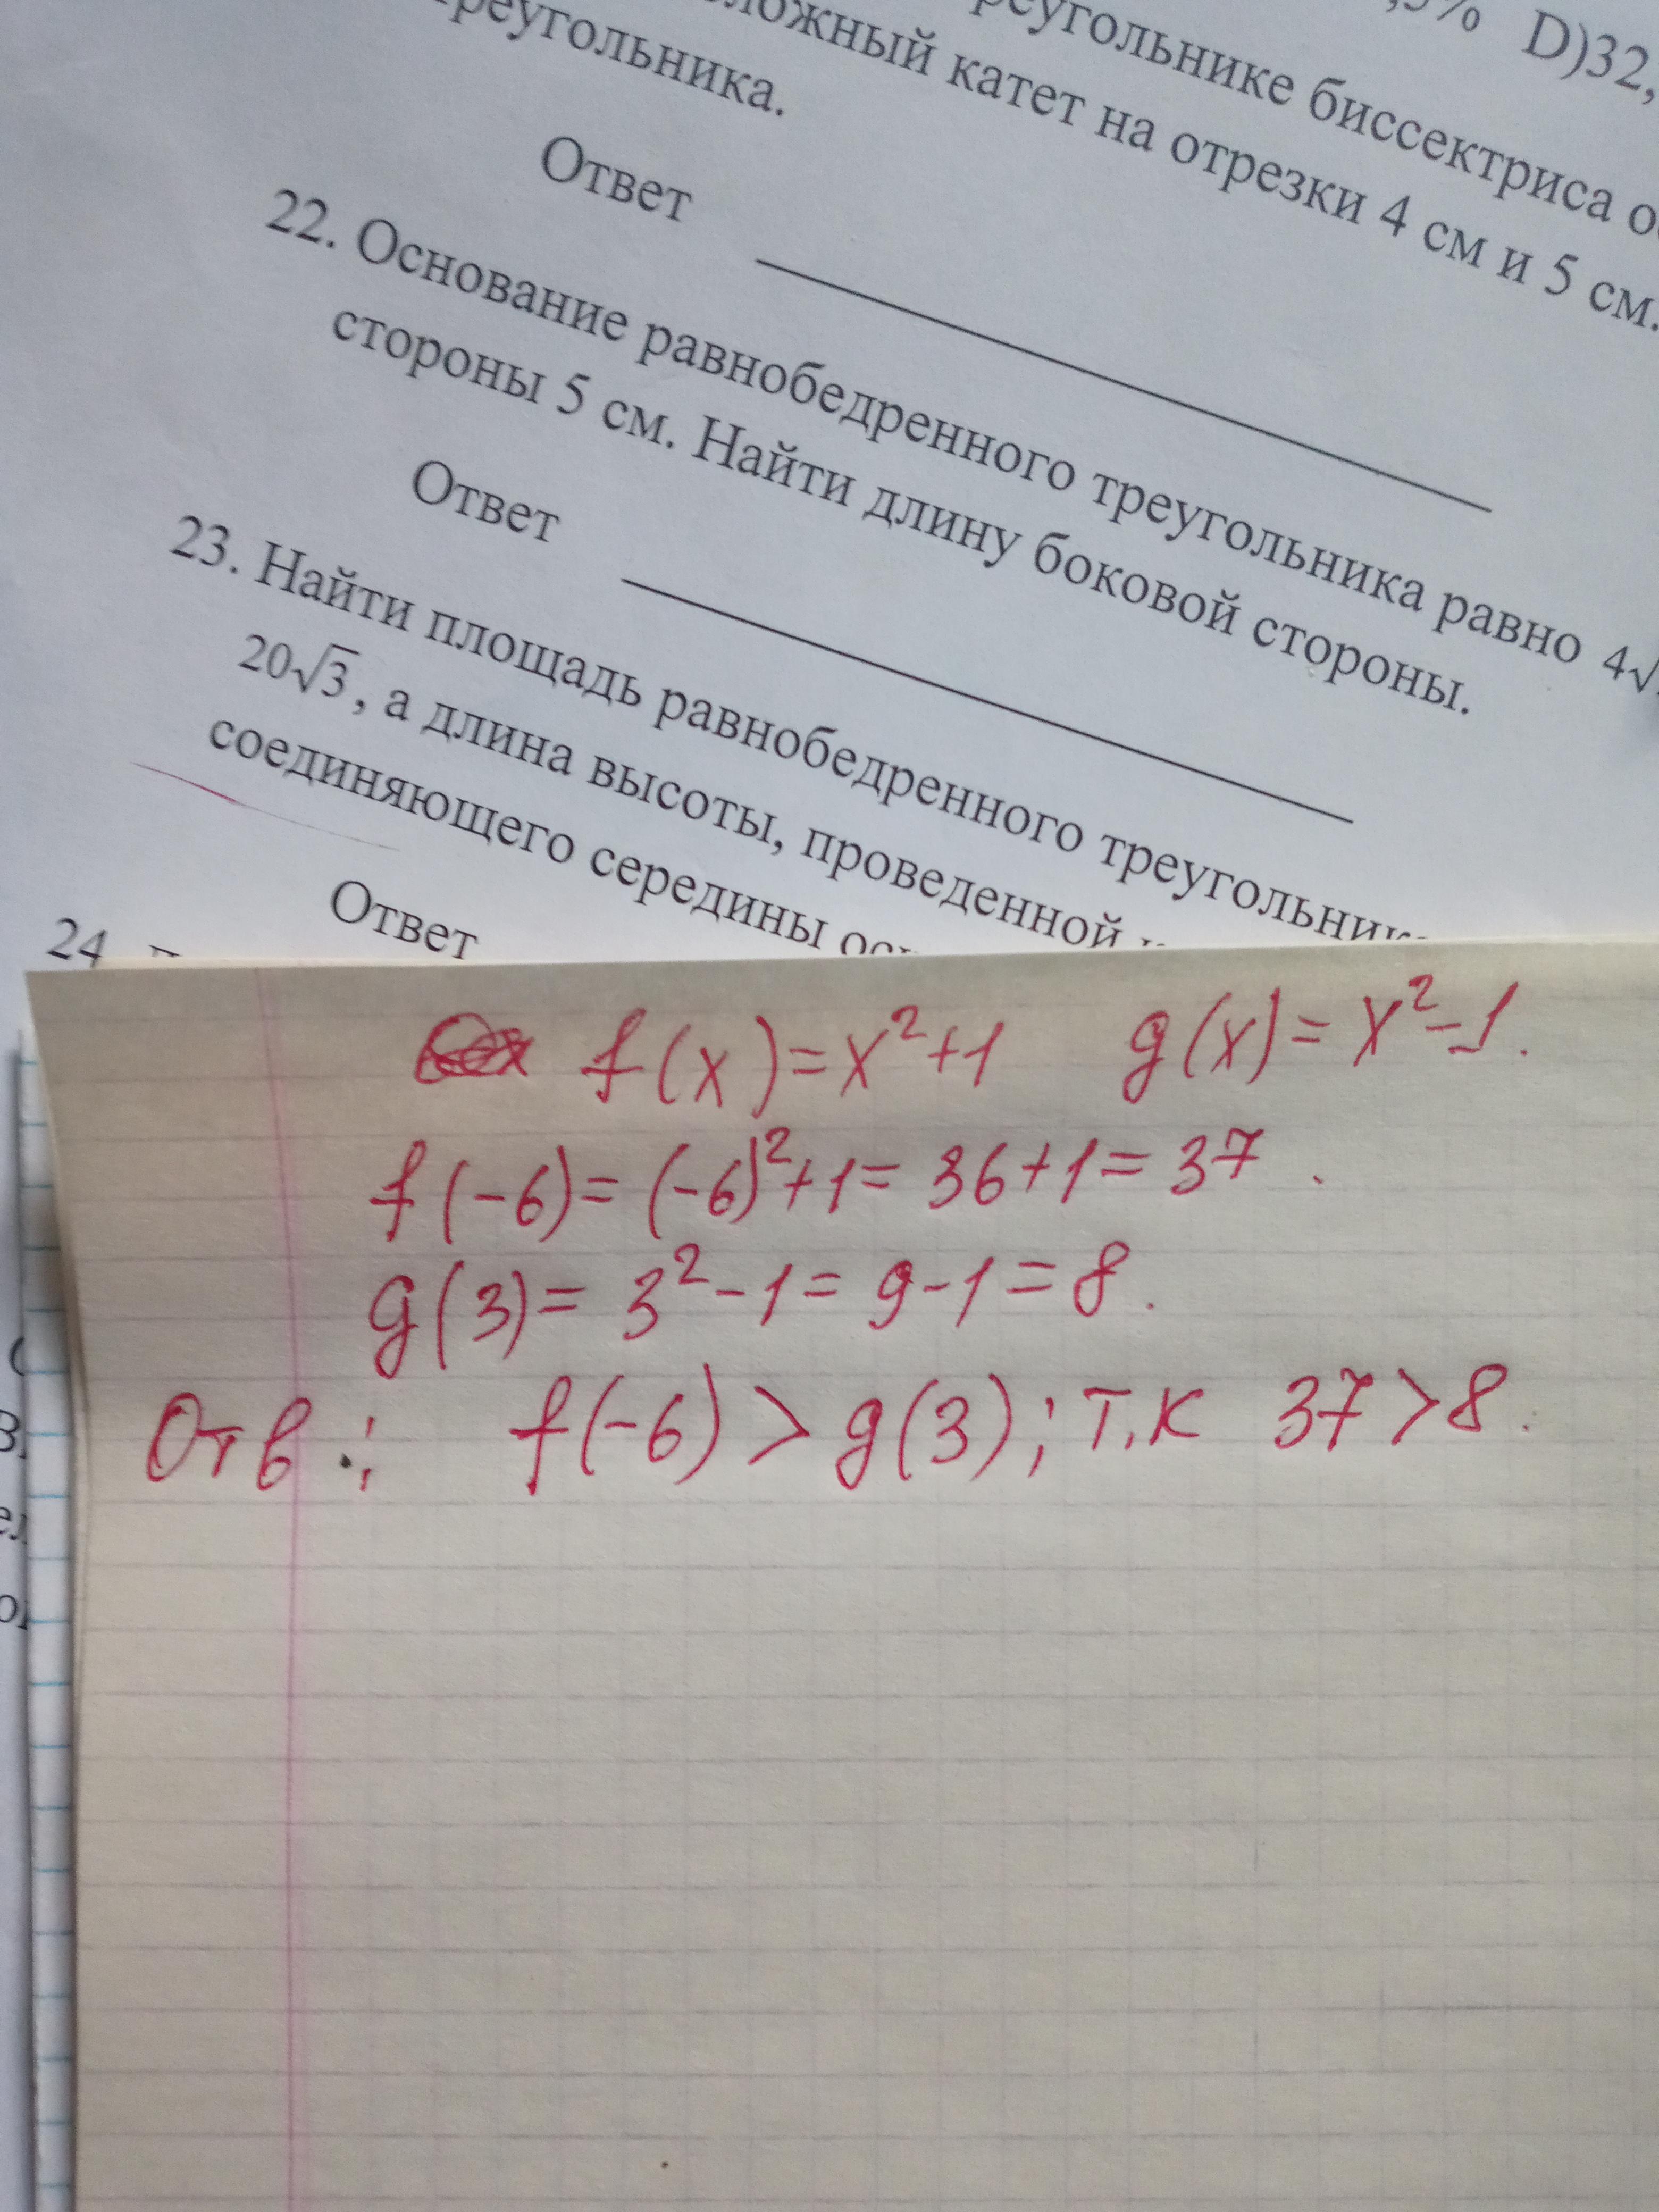 D)32,
треугольнике биссектриса
катет на отрезки 4 см и 5 см.
треугольника.
Ответ
22. Основание равнобедренного треугольника равно 4√
стороны 5 см. Найти длину боковой стороны.
Ответ
23. Найти площадь равнобедренного
20√3, а длина высоты, проведенной
соединяющего середины
Ответ
24
f(x)=x²+1 g(x)=x²-1.
f(-6)=(-6)²+1=36+1=37.
g(3)=3²-1=9-1=8.
Отв.: f(-6)>g(3); т.к 37>8.